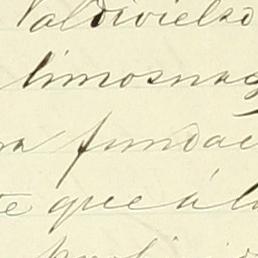 Valdivielso
limosnas
ra fundac
te que á la